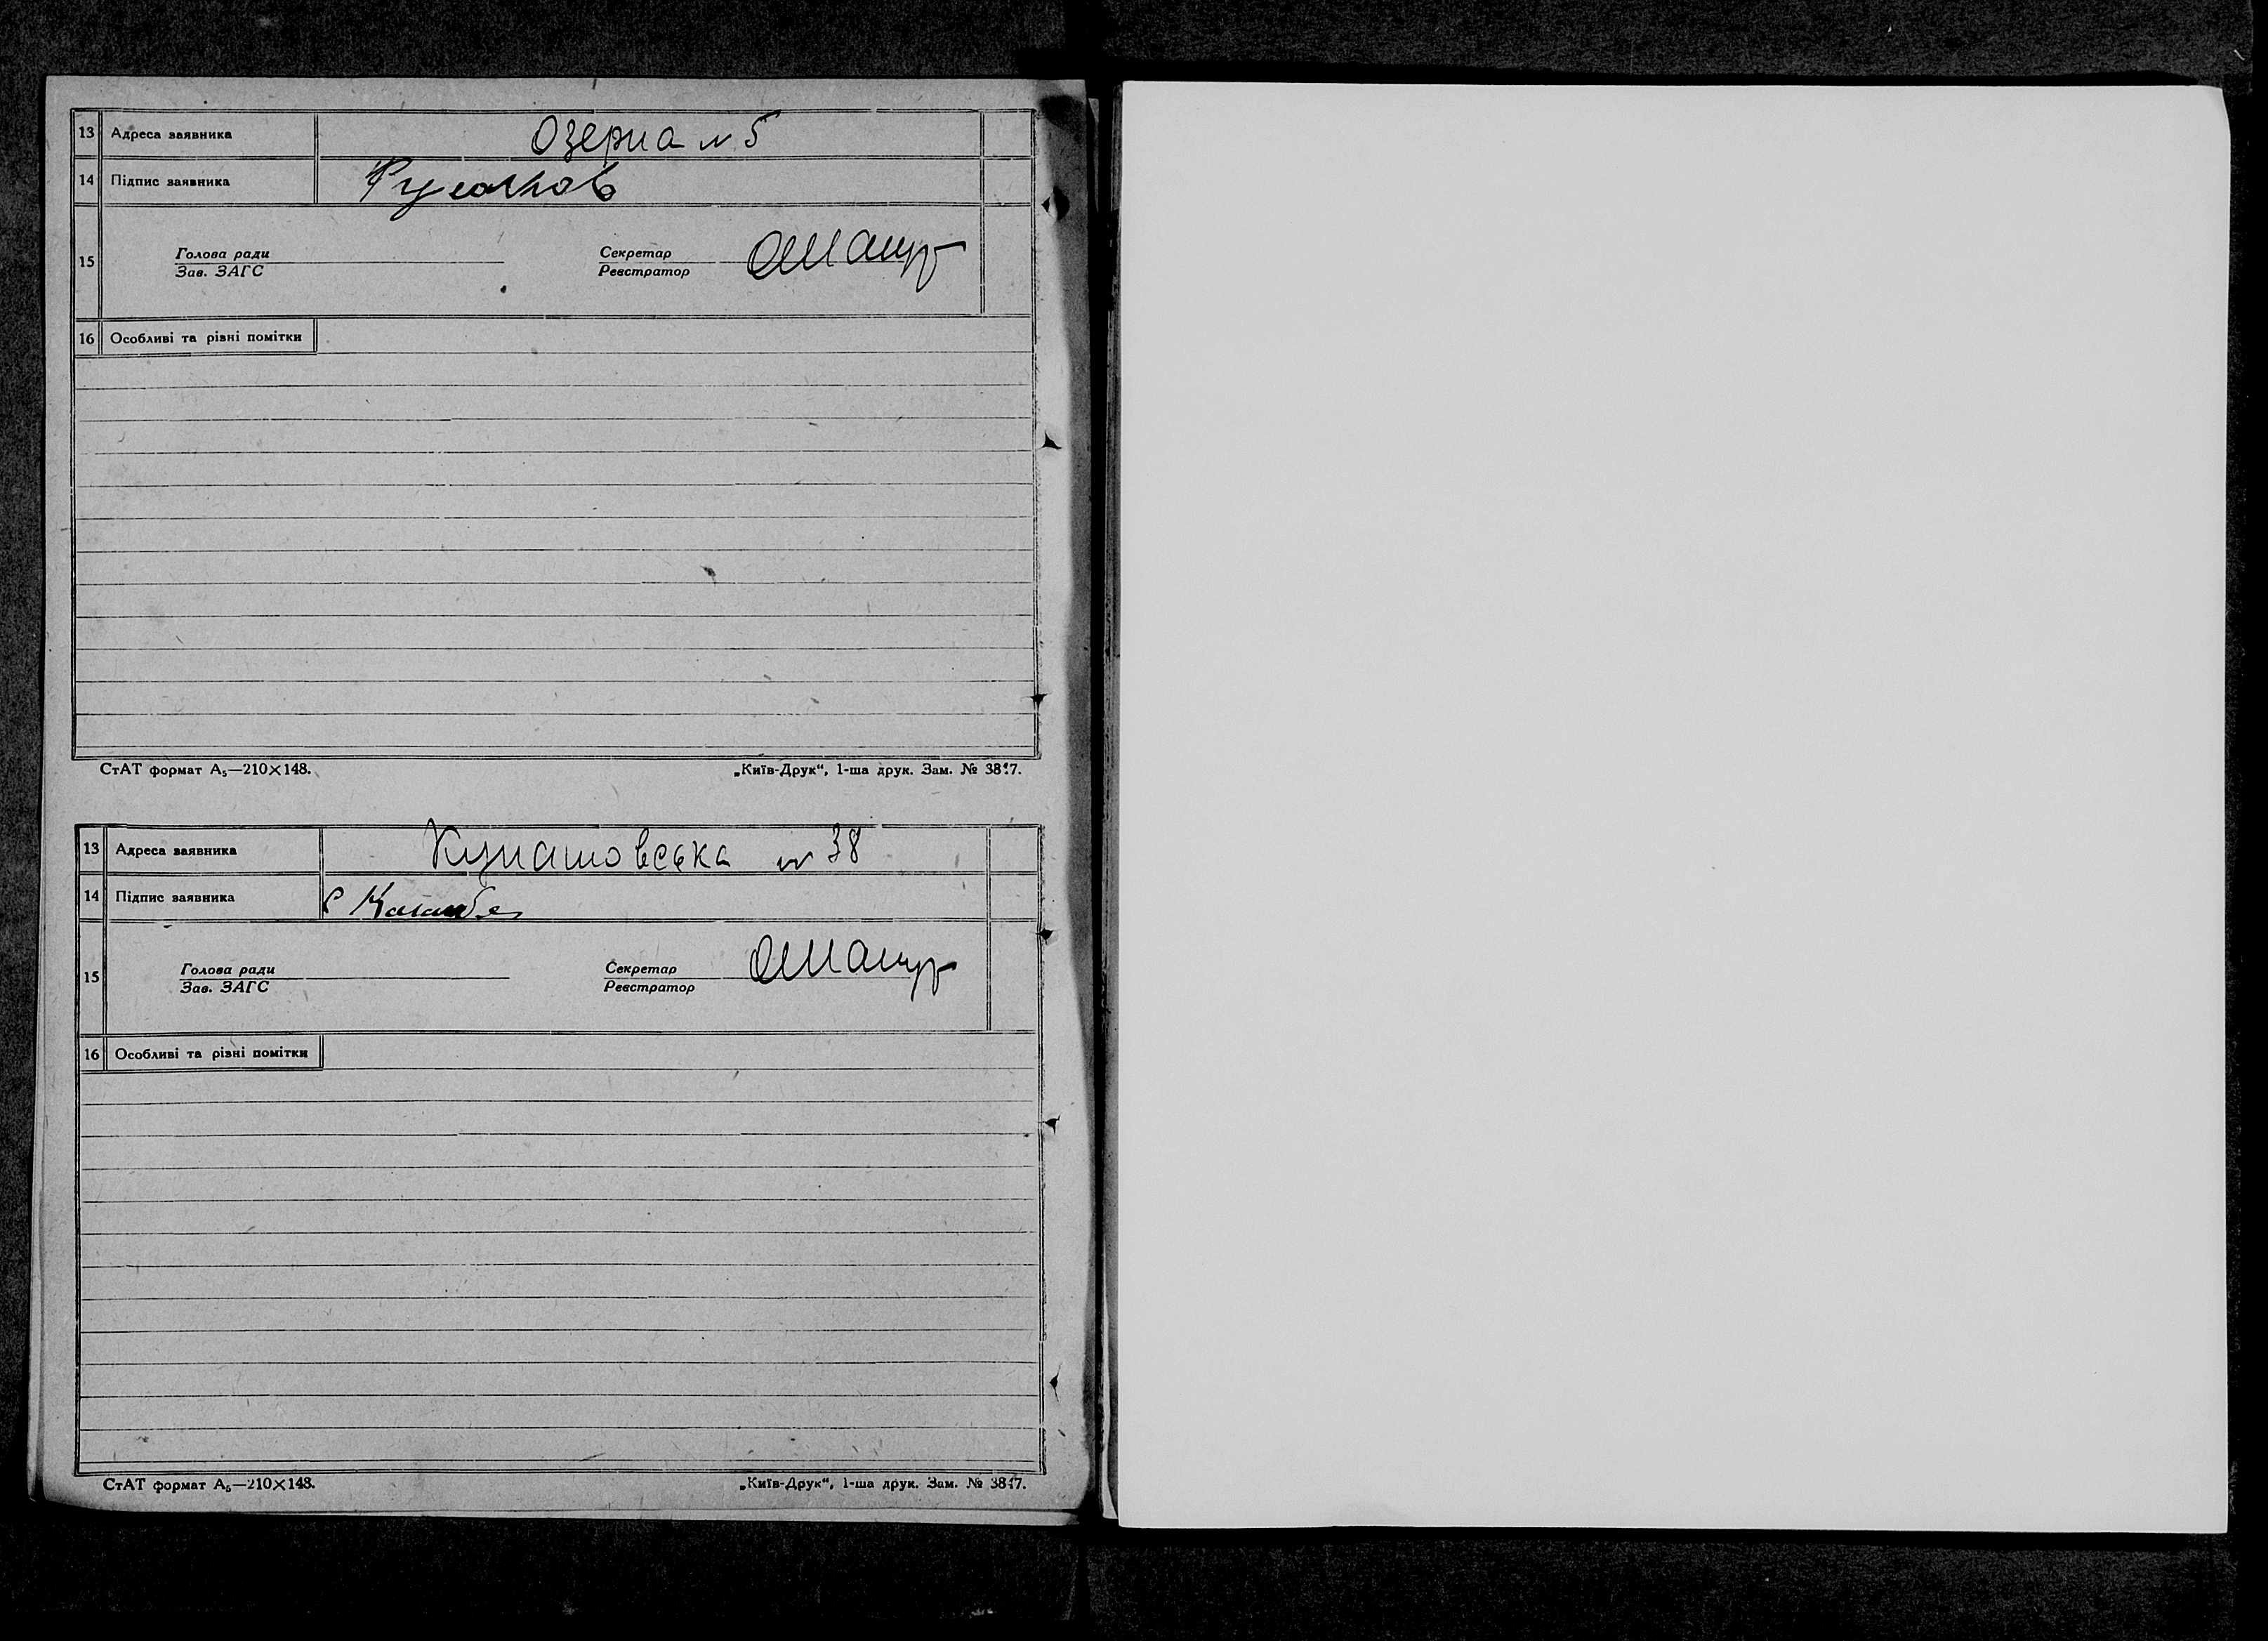 13 Адреса заявника Озерна № 5
14 Підпис заявника
15 Голова ради Секретар
Зав. ЗАГС Реєстратор
16 Особливі та різні помітки
СтАТ формат А₅—210×148. „Київ-Друк“, 1-ша друк. Зам. №
13 Адреса заявника Кунашовська № 38
14 Підпис заявника
15 Голова ради Секретар
Зав. ЗАГС Реєстратор
16 Особливі та різні помітки
СтАТ формат А₅—210×148. „Київ-Друк“, 1-ша друк. Зам. №